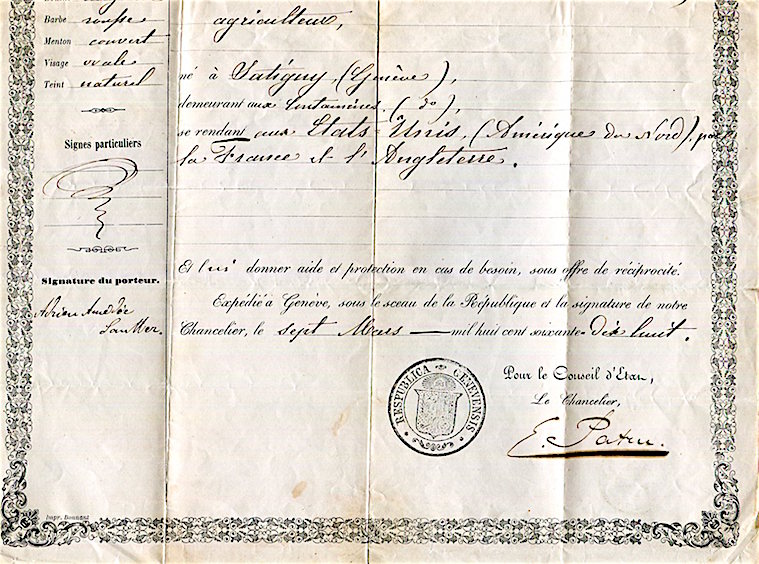 Barbe rousse
Menton couvert
Visage ovale
Teint naturel
Signes particuliers
Signature du porteur.
Adrien Amedée
Sautter.
Impr. Bonnant
agriculteur,
né à Satigny, (Genève),
demeurant aux Contamines (do),
se rendant aux Etats-Unis, (Amérique du Nord), par
la France et l'Angleterre.
Et lui donner aide et protection en cas de besoin, sous offre de réciprocité.
Expédié à Genève, sous le sceau de la République et la signature de notre
Chancelier, le sept Mars mil huit cent soixante-dix huit.
Pour le Conseil d'Etat,
Le Chancelier,
RESPUBLICA GENEVENSIS
E. Patru